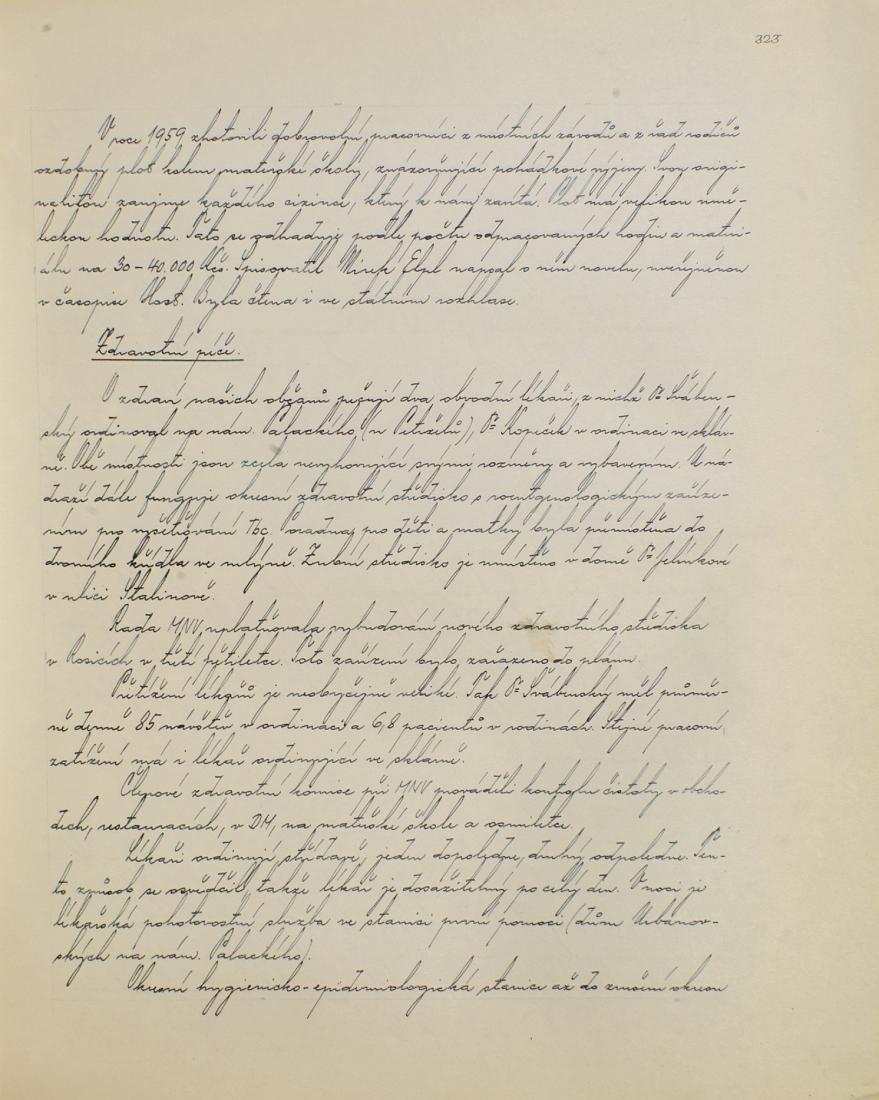 323
V roce 1959 zhotovili dobrovolní pracovníci z místních závodů a z řad rodičů
ozdobný plot kolem mateřské školy, znázorňující pohádkové výjevy. Svou origi-
nalitou zaujme každého cizince, který k nám zavítá. Plot má velikou umě-
leckou hodnotu. Tato se odhaduje podle počtu odpracovaných hodin a materi-
álu na 30-40.000 Kčs. Spisovatel Mirek Elpl napsal o něm novelu, uveřejněnou
v časopise Host. Byla čtena i ve státním rozhlase.
Zdravotní péče.
O zdraví našich občanů pečují dva obvodní lékaři, z nichž Dr Šváben-
ský ordinoval na nám. Palackého (u Petrželů), Dr Kopeček v ordinaci ve sklár-
ně. Obě místnosti jsou zcela nevyhovující svými rozměry a vybavením. U ná-
draží dále funguje okresní zdravotní středisko s roentgenologickým zaříze-
ním pro vyšetřování Tbc. Poradna pro děti a matky byla přemístěna do
dvorního křídla ve mlýně. Zubní středisko je umístěno v domě Dr Jelínkové
v ulici Stalinově.
Rada MNV uplatňovala vybudování nového zdravotního střediska
v Rosicích v třetí pětiletce. Toto zařízení bylo zařazeno do plánu.
Přetížení lékařů je neobyčejně veliké. Tak Dr Švábenský měl průměr-
ně denně 85 návštěv v ordinaci a 6,8 pacientů v rodinách. Stejné pracovní
zatížení má i lékař ordinující ve sklárně.
Členové zdravotní komise při MNV prováděli kontrolu čistoty v obcho-
dech, restauracích, v DM, na mateřské škole a osmiletce.
Lékaři ordinují střídavě, jeden dopoledne, druhý odpoledne. Ten-
to způsob se osvědčil, takže lékař je dosažitelný po celý den. V noci je
lékařská pohotovostní služba ve stanici první pomoci (dům Urbanov-
ských na nám. Palackého).
Okresní hygienicko-epidemiologická stanice až do zrušení okresu